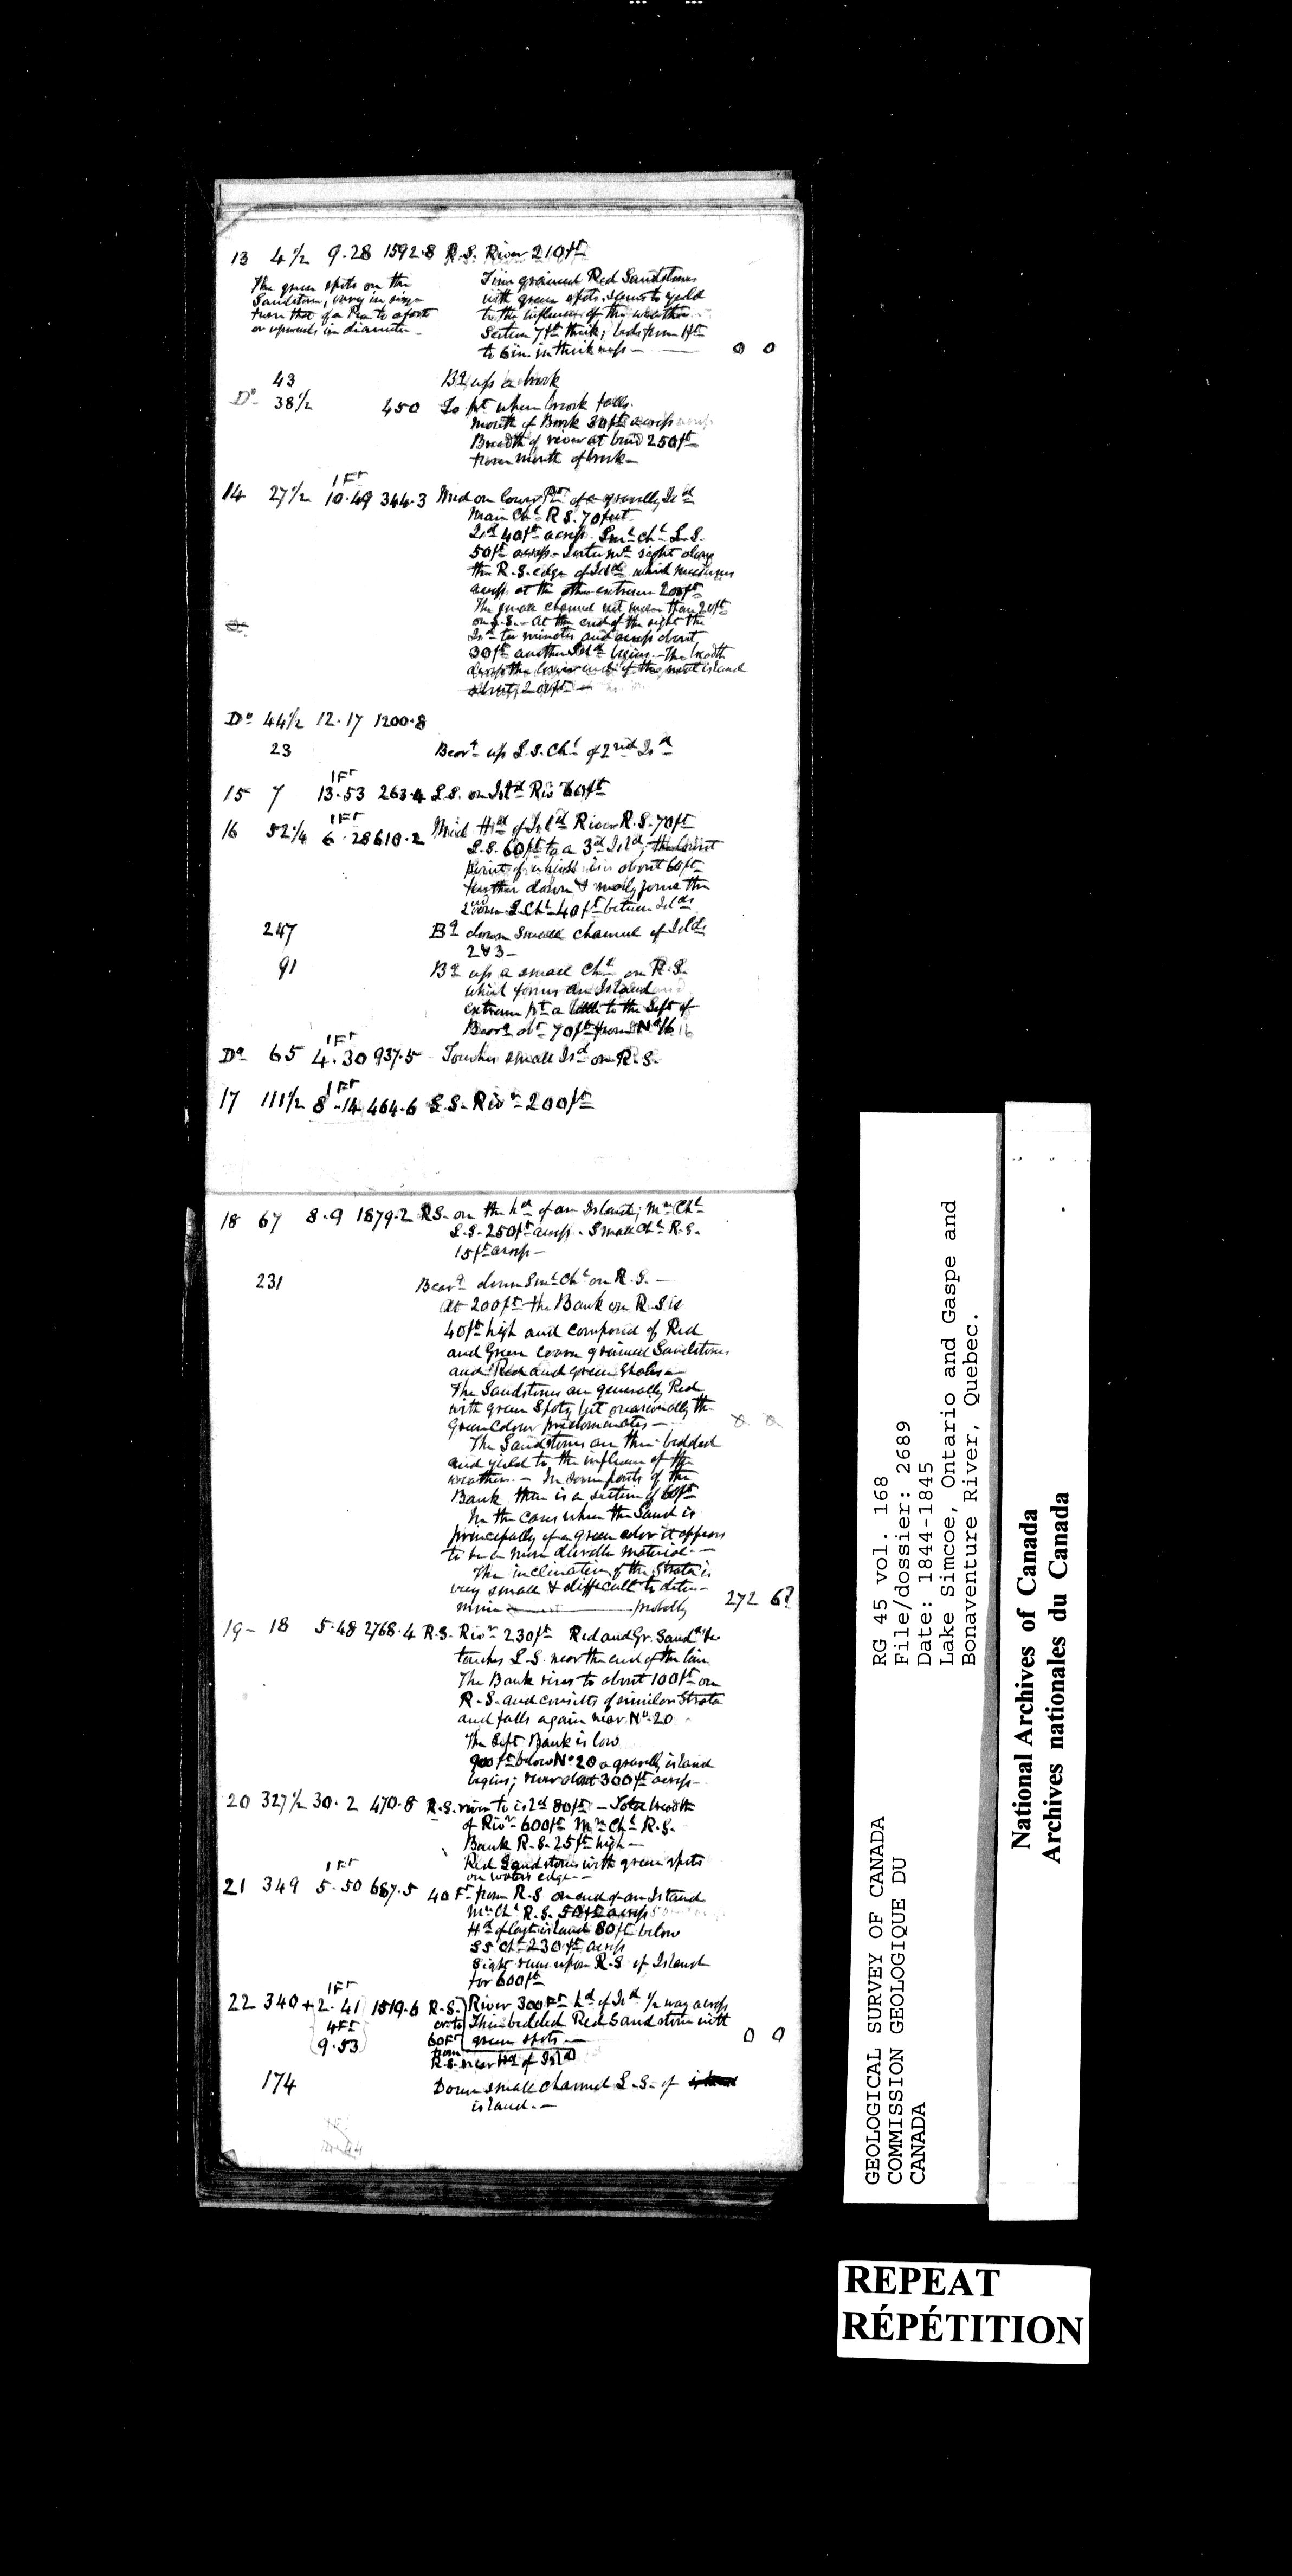 13 4½ 9.28 1592.8 R.S. River 210ft
The green spots on the
Sandstone, vary in size
from that of a Pea to a foot
or upwards in diameter
Fine grained Red Sandstones
with green spots. Seems to yield
to the influence of the weather
Section 7ft thick; beds from 1ft
to 6in. in thickness — 0 0
43 Bg up a brook
Do 38½ 450 To pt where brook falls.
mouth of Brook 30ft across
Breadth of river at bend 250ft
from mouth of brook —
1Ft
14 27½ 10.49 344.3 Mid on lower Pt of a gravelly Isd
Main Chl R.S. 70 feet
Isd 40ft across Sml chl L.S.
50ft across
the R.S. edge of Isld which measures
across at the other extreme 200ft
The small channel not more than 20ft
on L.S. — At the end of the sight the
Isd terminates and across about
30ft another Isld begins — The breadth
across the lower end of the next island
about 200ft —
Do 44½ 12.17 1200.8
23 Bearg up L.S. Chl of 2nd Isd
1Ft
15 7 13.53 263.4 L.S. on Isld Riv 60ft
1Ft
16 52¼ 6.28 610.2 Mid Hd of Isld River R.S. 70ft
L.S. 60ft to a 3d Isld, the lowest
point of which is about 60ft
further down & nearly joins the
2nd L. Chl 40ft between Islds
247 Bg down small channel of Islds
2 & 3 —
91 Bg up a small Chl on R.S.
which forms an Island
extreme pt a little to the Left of
Bearg 70ft from No 16
1Ft
Do 65 4.30 937.5 Touches small Isd on R.S.
1Ft
17 111½ 8.14 464.6 L.S. Rivr 200ft
18 67 8.9 1879.2 R.S. on the hd of an Island; Mn Chl
L.S. 250ft across. Small Chl R.S.
15ft across —
231 Bearg down Sml Chl on R.S. —
At 200ft the Bank on R.S. is
40ft high and composed of Red
and Green coarse grained Sandstones
and Red and green Shales —
The Sandstones are generally Red
with green Spots, but occasionally the
Green Colour predominates —
The Sandstones are thin-bedded
and yield to the influence of the
weather. — In some parts of the
Bank there is a section of 60ft
In the cases where the Sand is
principally of a green color it appears
to be a more durable material. —
The inclination of the Strata is
very small & difficult to deter-
mine — probably 272 6?
19 - 18 5.48 2768.4 R.S. Rivr 230ft Red and Gr. Sand
touches L.S. near the end of the line
The Bank rises to about 100ft on
R.S. and consists of similar Strata
and falls again near No 20
The Left Bank is low
900ft below No 20 a gravelly island
begins; river about 300ft across —
20 327½ 30.2 470.8 R.S. river to isd 80ft — Total breadth
of Rivr 600ft Mn Chl R.S.
Bank R.S. 25ft high —
Red Sandstones with green spots
on waters edge —
1Ft
21 349 5.50 687.5 40 Ft from R.S on end of an Island
Mn Chl R.S. 50ft across
Hd of last island 80ft below
LS Chl 230ft across
Sight runs upon R.S of Island
for 600ft
1Ft
22 340 + 2.41 1519.6 R.S. River 300Ft hd of Isd ½ way across
4Ft or to Thin bedded Red Sandstone with
9.53 60Ft green spots — 0 0
from
R.S. near Hd of Isld
174 Down small channel L.S. of island
island. —
RG 45 vol. 168
File/dossier: 2689
Date: 1844-1845
Lake Simcoe, Ontario and Gaspe and
Bonaventure River, Quebec.
GEOLOGICAL SURVEY OF CANADA
COMMISSION GEOLOGIQUE DU
CANADA
National Archives of Canada
Archives nationales du Canada
REPEAT
RÉPÉTITION